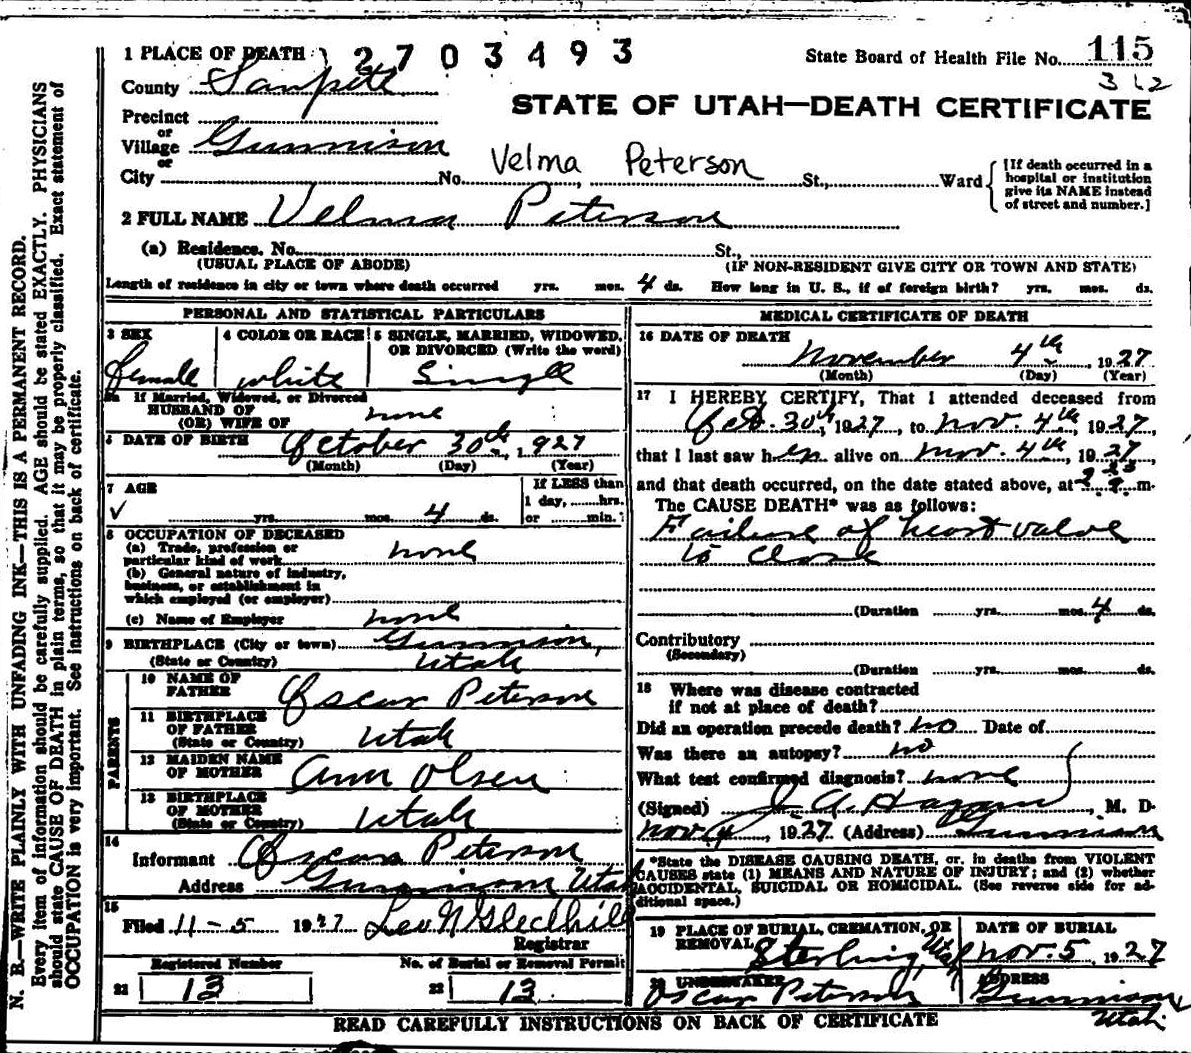 1 PLACE OF DEATH 2703493
State Board of Health File No. 115
312
County Sanpete
STATE OF UTAH—DEATH CERTIFICATE
Precinct
or
Village Gunnison
or
Velma Peterson
City No. St., Ward
[If death occurred in a
hospital or institution
give its NAME instead
of street and number.]
2 FULL NAME Velma Peterson
(a) Residence. No. St.,
(USUAL PLACE OF ABODE) (IF NON-RESIDENT GIVE CITY OR TOWN AND STATE)
Length of residence in city or town where death occurred yrs. mos. 4 ds. How long in U. S., if of foreign birth? yrs. mos. ds.
PERSONAL AND STATISTICAL PARTICULARS
3 SEX 4 COLOR OR RACE 5 SINGLE, MARRIED, WIDOWED,
OR DIVORCED (Write the word)
female white Single
5a If Married, Widowed, or Divorced
HUSBAND OF
(OR) WIFE OF none
6 DATE OF BIRTH October 30th, 1927
(Month) (Day) (Year)
7 AGE If LESS than
1 day, hrs.
yrs. mos. 4 ds. or min.
8 OCCUPATION OF DECEASED
(a) Trade, profession or
particular kind of work none
(b) General nature of industry,
business, or establishment in
which employed (or employer)
(c) Name of Employer none
9 BIRTHPLACE (City or town) Gunnison,
(State or Country) Utah
PARENTS
10 NAME OF
FATHER Oscar Peterson
11 BIRTHPLACE
OF FATHER
(State or Country) Utah
12 MAIDEN NAME
OF MOTHER Ann Olsen
13 BIRTHPLACE
OF MOTHER
(State or Country) Utah
14
Informant Oscar Peterson
Address Gunnison Utah
15
Filed 11-5 1927 Leo N Gledhill
Registrar
Registered Number No. of Burial or Removal Permit
21 13 22 13
MEDICAL CERTIFICATE OF DEATH
16 DATE OF DEATH
November 4th 1927
(Month) (Day) (Year)
17 I HEREBY CERTIFY, That I attended deceased from
Oct. 30th, 1927, to Nov. 4th, 1927,
that I last saw her alive on Nov. 4th, 1927
and that death occurred, on the date stated above, at m.
The CAUSE DEATH* was as follows:
Failure of heart valve
to close
(Duration yrs. mos. 4 ds.
Contributory
(Secondary)
(Duration yrs. mos. ds.
18 Where was disease contracted
if not at place of death?
Did an operation precede death? no Date of
Was there an autopsy? no
What test confirmed diagnosis? none
(Signed) J. A. Hagan, M. D.
Nov 4, 1927 (Address) Gunnison
*State the DISEASE CAUSING DEATH, or, in deaths from VIOLENT
CAUSES state (1) MEANS AND NATURE OF INJURY; and (2) whether
ACCIDENTAL, SUICIDAL OR HOMICIDAL. (See reverse side for ad-
ditional space.)
19 PLACE OF BURIAL, CREMATION, OR
REMOVAL Sterling, Utah
DATE OF BURIAL
Nov. 5, 1927
20 UNDERTAKER
Oscar Peterson,
ADDRESS
Gunnison
Utah
READ CAREFULLY INSTRUCTIONS ON BACK OF CERTIFICATE
N. B.—WRITE PLAINLY WITH UNFADING INK—THIS IS A PERMANENT RECORD.
Every item of information should be carefully supplied. AGE should be stated EXACTLY. PHYSICIANS
should state CAUSE OF DEATH in plain terms, so that it may be properly classified. Exact statement of
OCCUPATION is very important. See instructions on back of certificate.